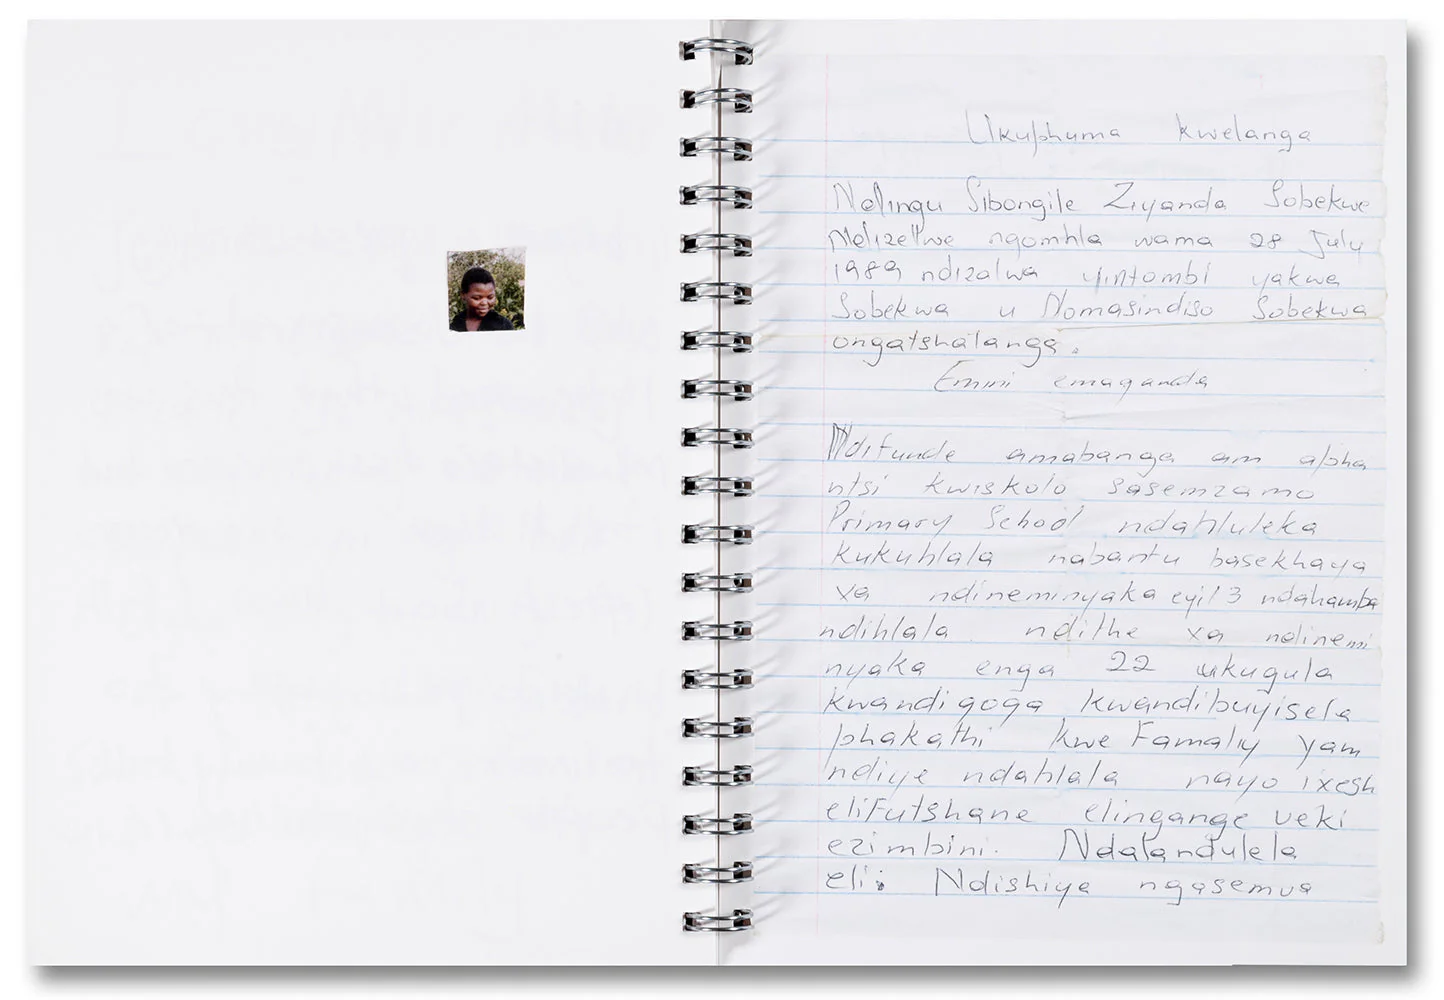 Ukuphuma kwelanga
Ndingu Sibongile Ziyanda Sobekwe
Ndizelwe ngomhla wama 28 July
1989 ndizalwa yintombi yakwa
Sobekwa u Nomasindiso Sobekwa
ongatshatanga.
Emini emaqanda
Ndifunde amabanga am apha
ntsi kwiskolo sasemzamo
Primary School ndahluleka
kukuhlala nabantu basekhaya
xa ndineminyaka eyi13 ndahamba
ndihlala ndithe xa ndinemi
nyaka enga 22 ukugula
kwandigoga kwandibuyisela
phakathi kwe Famaliy yam
ndiye ndahlala nayo ixesh
eliFutshane elingange veki
ezimbini. Ndalandulela
eli. Ndishiye ngasemva